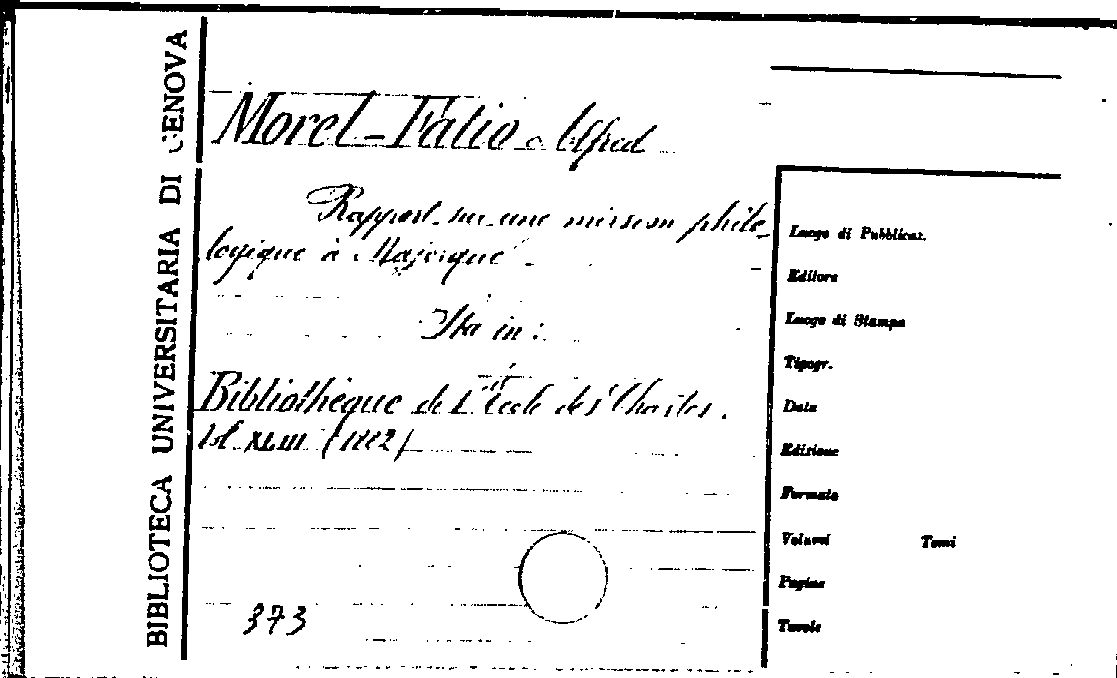 BIBLIOTECA UNIVERSITARIA DI GENOVA
Morel-Fatio Alfred
Rapport sur une mission philo-
logique à Majorque
Sta in:
Bibliothèque de l'école des Chartes.
Vol. XLIII (1882)
373
Luogo di Pubblicaz.
Editore
Luogo di Stampa
Tipogr.
Data
Edizione
Formato
Volumi Tomi
Pagine
Tavole